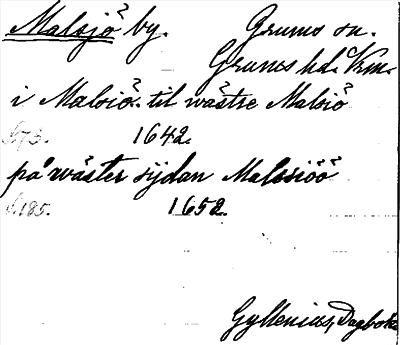 Malsjö by. Grums sn.
Grums hd. Vrm.
i Malsiö. til wästre Malsiö
s.73. 1642.
på wäster sijdan Malssiöö
s.185. 1652.
Gyllenius, Dagbok